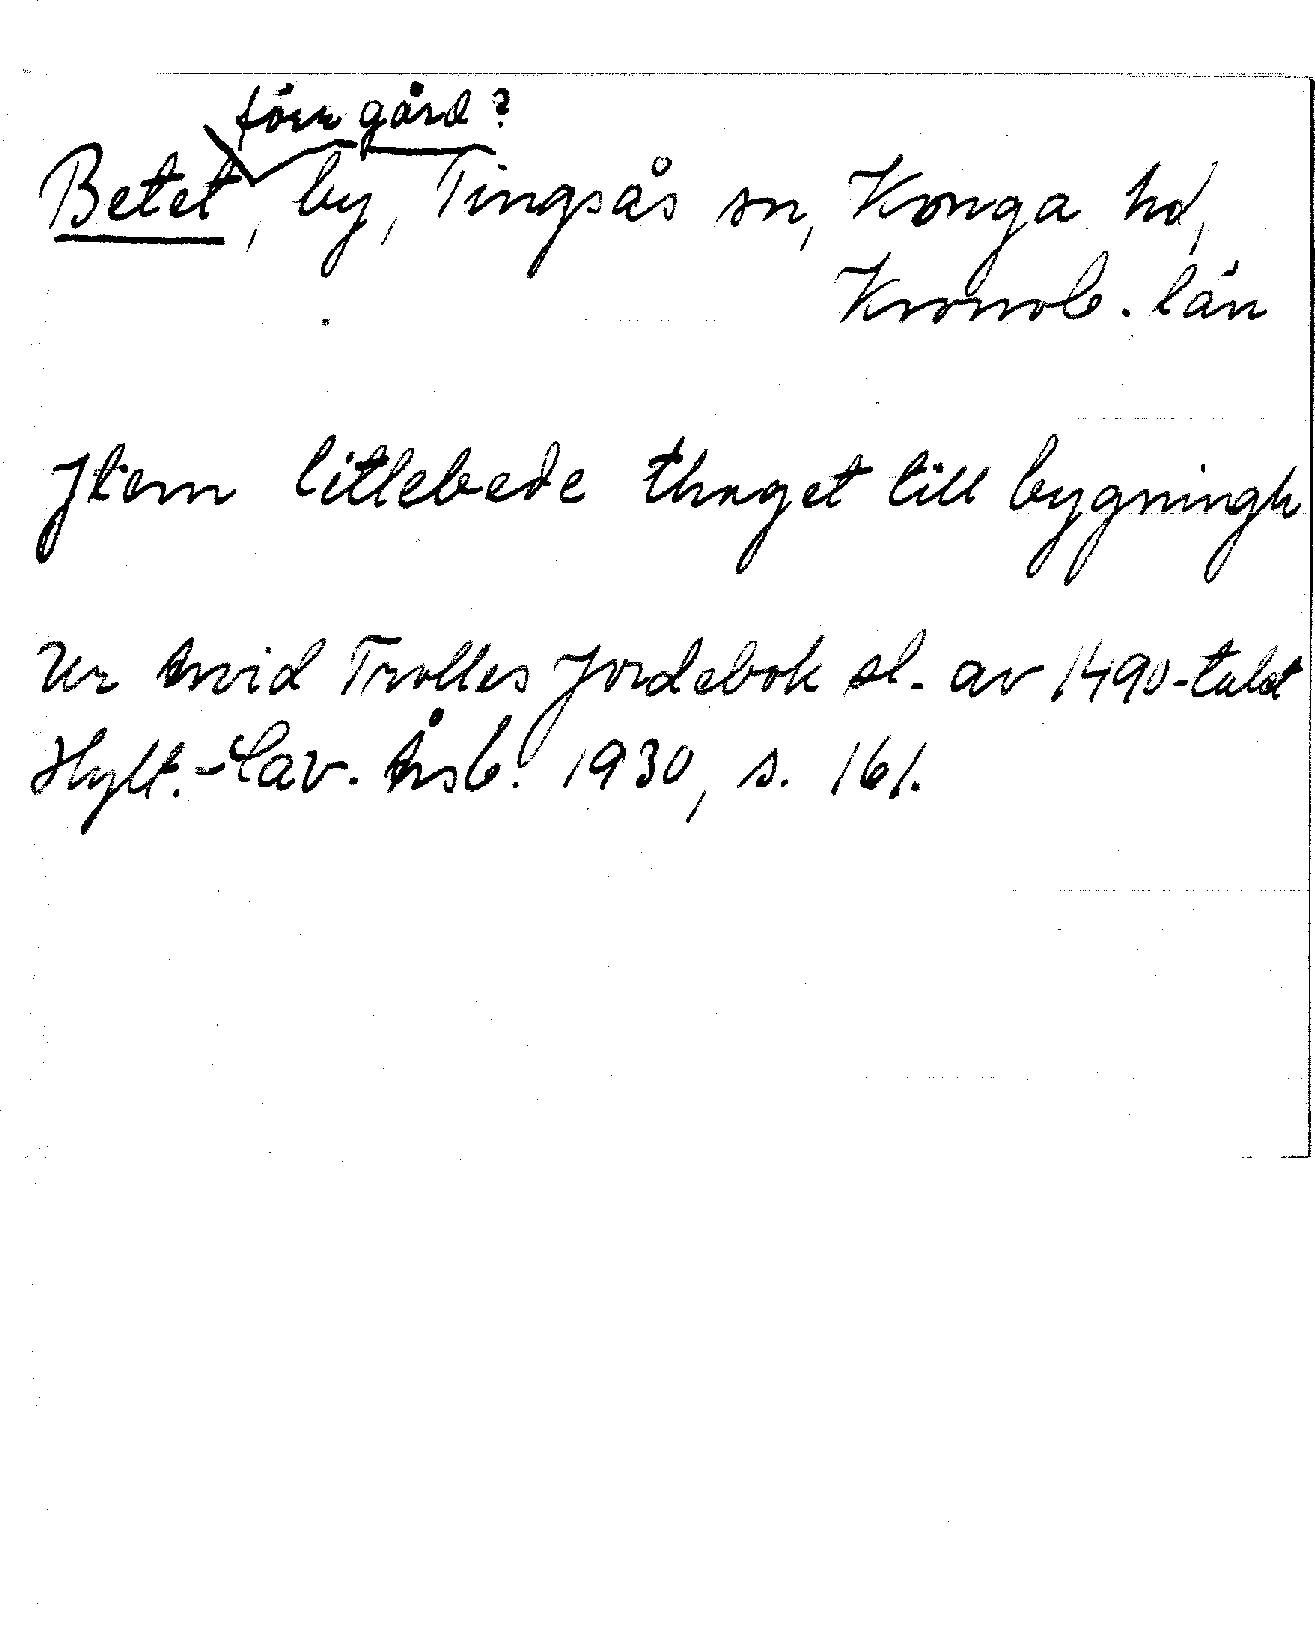 förr gård?
Betet, by, Tingsås sn, Konga hd,
Kronob. län
Item litlebede thaget till bygningh
Ur Arvid Trolles Jordebok sl. av 1490-talet
Hylt.-Cav. Årsb. 1930, s. 161.